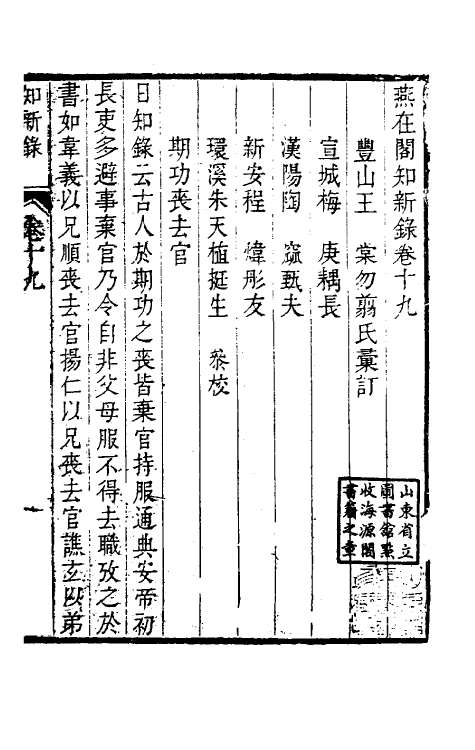 燕在閣知新錄卷十九
豐山王　棠勿翦氏彙訂
宣城梅　庚耦長
漢陽陶　窳甄夫
新安程　煒彤友
環溪朱天植挺生　叅校
期功喪去官
日知錄云古人於期功之喪皆棄官持服通典安帝初
長吏多避事棄官乃令自非父母服不得去職攷之於
書如韋義以兄順喪去官揚仁以兄喪去官譙玄以弟
知新錄　卷十九
山東省立
圖書館點
收海源閣
書籍之章